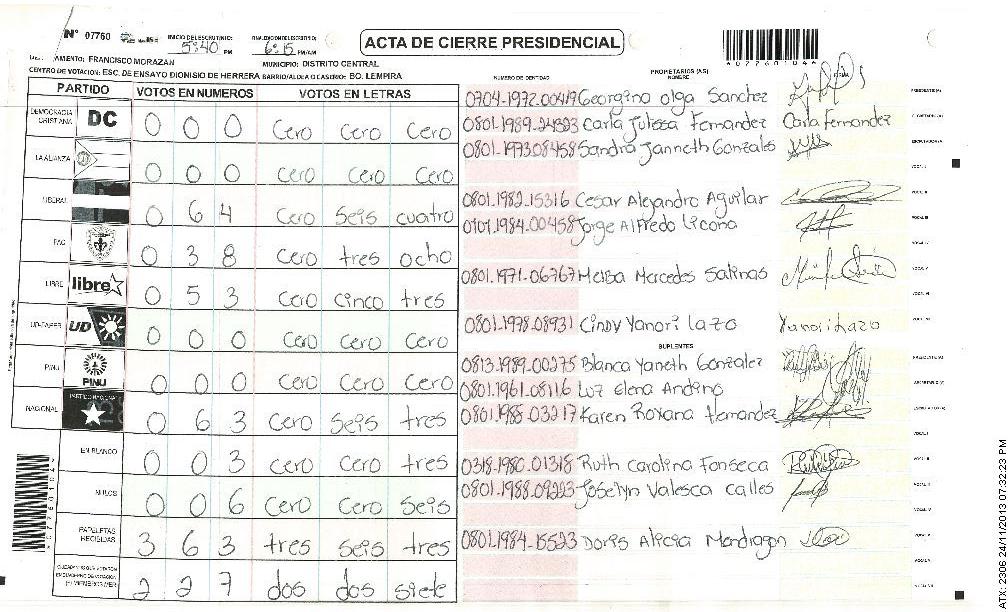 N° 07760
INICIO DEL ESCRUTINIO: 5:40 PM
FINALIZACION DEL ESCRUTINIO: 6:15 PM/AM
ACTA DE CIERRE PRESIDENCIAL
*07760104*
DEPARTAMENTO: FRANCISCO MORAZAN MUNICIPIO: DISTRITO CENTRAL
CENTRO DE VOTACION: ESC. DE ENSAYO DIONISIO DE HERRERA BARRIO/ALDEA O CASERIO: BO. LEMPIRA
PARTIDO VOTOS EN NUMEROS VOTOS EN LETRAS
DEMOCRACIA CRISTIANA DC 0 0 0 Cero Cero Cero
LA ALIANZA 0 0 0 Cero Cero Cero
LIBERAL 0 6 4 Cero Seis cuatro
PAC 0 3 8 Cero tres ocho
LIBRE libre 0 5 3 Cero cinco tres
UD-FAPER UD 0 0 0 Cero Cero Cero
PINU PINU 0 0 0 Cero Cero Cero
NACIONAL PARTIDO NACIONAL 0 6 3 Cero Seis tres
EN BLANCO 0 0 3 Cero Cero tres
NULOS 0 0 6 Cero Cero Seis
PAPELETAS RECIBIDAS 3 6 3 tres seis tres
2 2 7 dos dos siete
NUMERO DE IDENTIDAD PROPIETARIOS (AS) NOMBRE
0704-1972-00419 Georgina Olga Sanchez
0801-1989-24323 Carla Julissa Fernandez Carla Fernandez
0801-1973-08458 Sandra Janneth Gonzales
0801-1982-15316 Cesar Alejandro Aguilar
0707-1984-00458 Jorge Alfredo Licona
0801-1971-06767 Melba Mercedes Salinas
0801-1978-08931 Cindy Yanori Lazo Yanori Lazo
SUPLENTES
0813-1989-00275 Blanca Yaneth Gonzalez
0801-1961-08116 Luz Elena Andino
0801-1985-03217 Karen Roxana Hernandez
0318-1980-01318 Ruth Carolina Fonseca
0801-1988-09223 Joselyn Valesca Calles
0801-1984-15523 Doris Alicia Mondragon
ATX: 2306 24/11/2013 07:32:23 PM